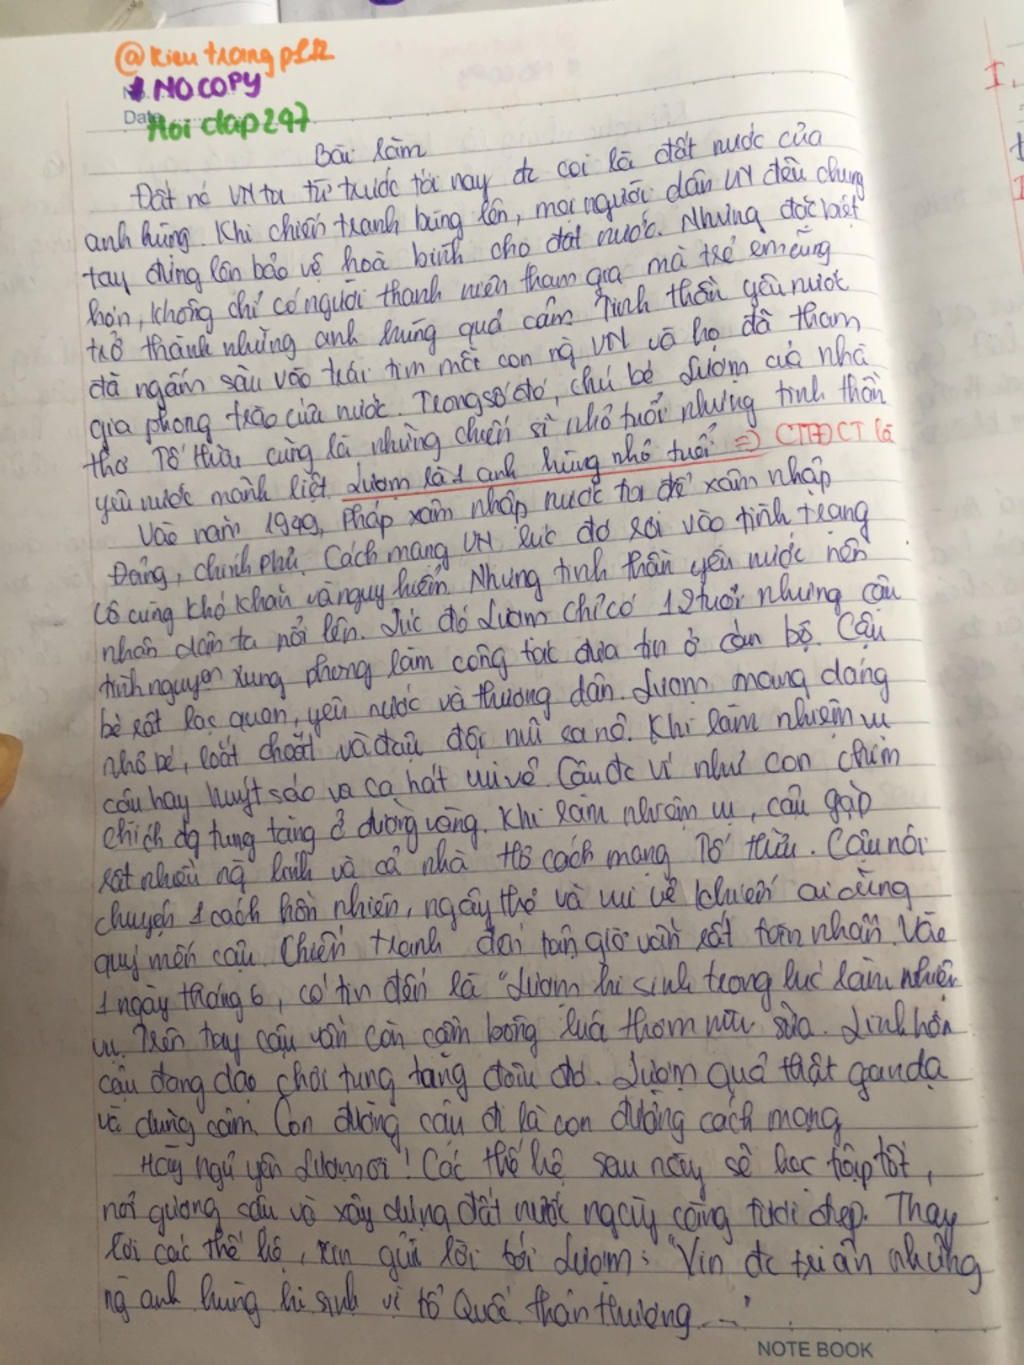 @Kieutrangpl12
NO COPY
Date
Hoi dap247
Bài làm
Đất nc VN ta từ trước tới nay đc coi là đất nước của
anh hùng. Khi chiến tranh bùng lên, mọi người dân VN đều chung
tay đứng lên bảo vệ hoà bình cho đất nước. Nhưng đặc biệt
hơn, không chỉ có người thanh niên tham gia mà trẻ em cũng
trở thành những anh hùng quả cảm. Tinh thần yêu nước
đã ngấm sâu vào trái tim mỗi con ng VN và họ đã tham
gia phong trào cứu nước. Trong số đó, chú bé Lượm của nhà
thơ Tố Hữu cũng là những chiến sĩ nhỏ tuổi nhưng tinh thần
yêu nước mãnh liệt. Lượm là 1 anh hùng nhỏ tuổi => CTĐCT là
Vào năm 1949, Pháp xâm nhập nước ta để xâm nhập
Đảng, chính phủ. Cách mạng VN lúc đó rơi vào tình trạng
vô cùng khó khăn và nguy hiểm. Nhưng tinh thần yêu nước nên
nhân dân ta nổi lên. Lúc đó Lượm chỉ có 12 tuổi nhưng cậu
tình nguyện xung phong làm công tác đưa tin ở cán bộ. Cậu
bé rất lạc quan, yêu nước và thương dân. Lượm mang dáng
nhỏ bé, loắt choắt và đầu đội mũ ca nô. Khi làm nhiệm vụ
cậu hay huýt sáo và ca hát vui vẻ. Cậu đc ví như con chim
chích đg tung tăng ở đường vàng. Khi làm nhiệm vụ, cậu gặp
rất nhiều ng lính và cả nhà thơ cách mạng Tố Hữu. Cậu nói
chuyện 1 cách hồn nhiên, ngây thơ và vui vẻ khiến ai cũng
quý mến cậu. Chiến tranh giờ vẫn rất tàn nhẫn. Vào
1 ngày tháng 6, có tin đến là "Lượm hi sinh trong lúc làm nhiệm
vụ. Trên tay cậu vẫn còn cầm bông luá thơm mùi sữa. Linh hồn
cậu đang dạo chơi tung tăng đâu đó. Lượm quả thật gan dạ
và dũng cảm. Con đường cậu đi là con đường cách mạng
Hãy ngủ yên Lượm ơi! Các thế hệ sau này sẽ học tập tốt,
noi gương cậu và xây dựng đất nước ngày càng tươi đẹp. Thay
lời các thế hệ, xin gửi lời tới Lượm: "Xin đc tri ân những
ng anh hùng hi sinh vì tổ Quốc thân thương..."
NOTE BOOK